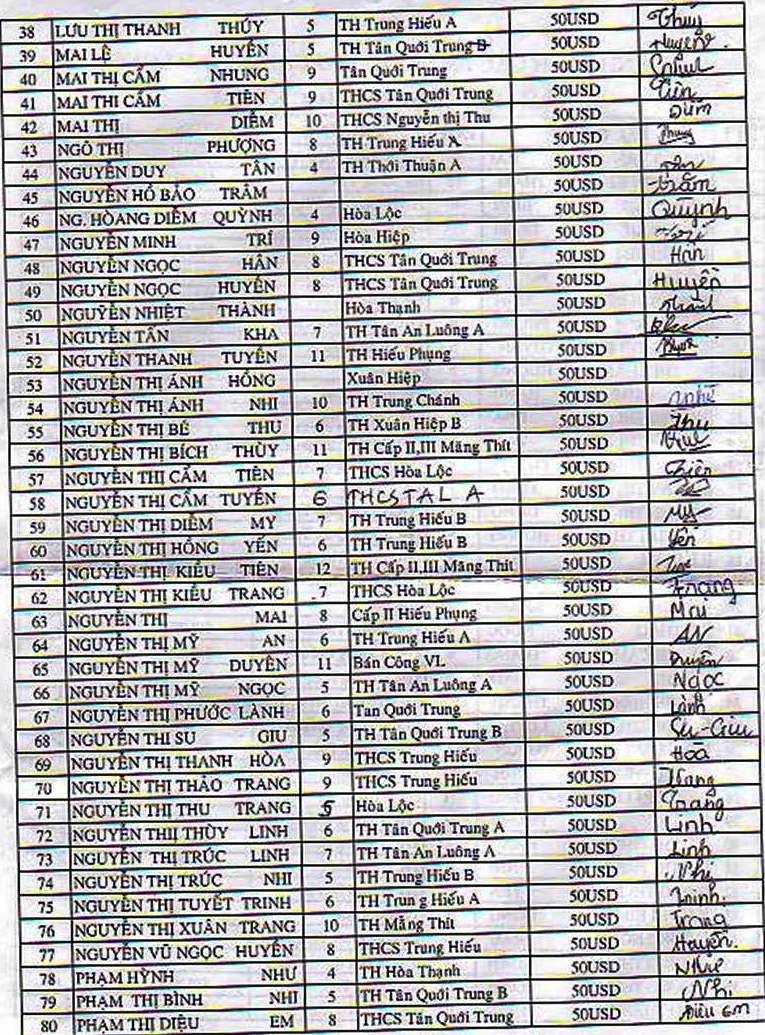 38 LƯU THỊ THANH THÚY 5 TH Trung Hiếu A 50USD Thúy
39 MAI LỆ HUYỀN 5 TH Tân Quới Trung B 50USD Huyền
40 MAI THỊ CẨM NHUNG 9 Tân Quới Trung 50USD
41 MAI THI CẨM TIÊN 9 THCS Tân Quới Trung 50USD Tiên
42 MAI THỊ DIỄM 10 THCS Nguyễn thị Thu 50USD Diễm
43 NGÔ THỊ PHƯỢNG 8 TH Trung Hiếu A 50USD
44 NGUYỄN DUY TÂN 4 TH Thới Thuận A 50USD
45 NGUYỄN HỒ BẢO TRÂM 50USD trâm
46 NG. HOÀNG DIỄM QUỲNH 4 Hòa Lộc 50USD Quỳnh
47 NGUYỄN MINH TRÍ 9 Hòa Hiệp 50USD
48 NGUYỄN NGỌC HÂN 8 THCS Tân Quới Trung 50USD Hân
49 NGUYỄN NGỌC HUYỀN 8 THCS Tân Quới Trung 50USD Huyền
50 NGUYỄN NHIỆT THÀNH Hòa Thạnh 50USD
51 NGUYỄN TẤN KHA 7 TH Tân An Luông A 50USD
52 NGUYỄN THANH TUYỀN 11 TH Hiếu Phụng 50USD
53 NGUYỄN THỊ ÁNH HỒNG Xuân Hiệp 50USD
54 NGUYỄN THỊ ÁNH NHI 10 TH Trung Chánh 50USD
55 NGUYỄN THỊ BÉ THU 6 TH Xuân Hiệp B 50USD Thu
56 NGUYỄN THỊ BÍCH THÙY 11 TH Cấp II,III Măng Thít 50USD
57 NGUYỄN THỊ CẨM TIÊN 7 THCS Hòa Lộc 50USD
58 NGUYỄN THỊ CẨM TUYẾN 6 THCSTAL A 50USD
59 NGUYỄN THỊ DIỄM MY 7 TH Trung Hiếu B 50USD My
60 NGUYỄN THỊ HỒNG YẾN 6 TH Trung Hiếu B 50USD Yến
61 NGUYỄN THỊ KIỀU TIÊN 12 TH Cấp II,III Măng Thít 50USD
62 NGUYỄN THỊ KIỀU TRANG 7 THCS Hòa Lộc 50USD Trang
63 NGUYỄN THỊ MAI 8 Cấp II Hiếu Phụng 50USD Mai
64 NGUYỄN THỊ MỸ AN 6 TH Trung Hiếu A 50USD AN
65 NGUYỄN THỊ MỸ DUYÊN 11 Bán Công VL 50USD Duyên
66 NGUYỄN THỊ MỸ NGỌC 5 TH Tân An Luông A 50USD Ngọc
67 NGUYỄN THỊ PHƯỚC LÀNH 6 Tan Quới Trung 50USD Lành
68 NGUYỄN THI SU GIU 5 TH Tân Quới Trung B 50USD Su-Giu
69 NGUYỄN THỊ THANH HÒA 9 THCS Trung Hiếu 50USD Hoà
70 NGUYỄN THỊ THẢO TRANG 9 THCS Trung Hiếu 50USD Trang
71 NGUYỄN THỊ THU TRANG 5 Hòa Lộc 50USD Trang
72 NGUYỄN THII THÙY LINH 6 TH Tân Quới Trung A 50USD Linh
73 NGUYỄN THỊ TRÚC LINH 7 TH Tân An Luông A 50USD Linh
74 NGUYỄN THỊ TRÚC NHI 5 TH Trung Hiếu B 50USD Nhi
75 NGUYỄN THỊ TUYẾT TRINH 6 TH Trun g Hiếu A 50USD Trinh.
76 NGUYỄN THỊ XUÂN TRANG 10 TH Măng Thít 50USD Trang
77 NGUYỄN VŨ NGỌC HUYỀN 8 THCS Trung Hiếu 50USD Huyền.
78 PHẠM HỲNH NHƯ 4 TH Hòa Thạnh 50USD Như
79 PHẠM THỊ BÌNH NHI 5 TH Tân Quới Trung B 50USD Nhi
80 PHẠM THỊ DIỆU EM 8 THCS Tân Quới Trung 50USD Diệu Em